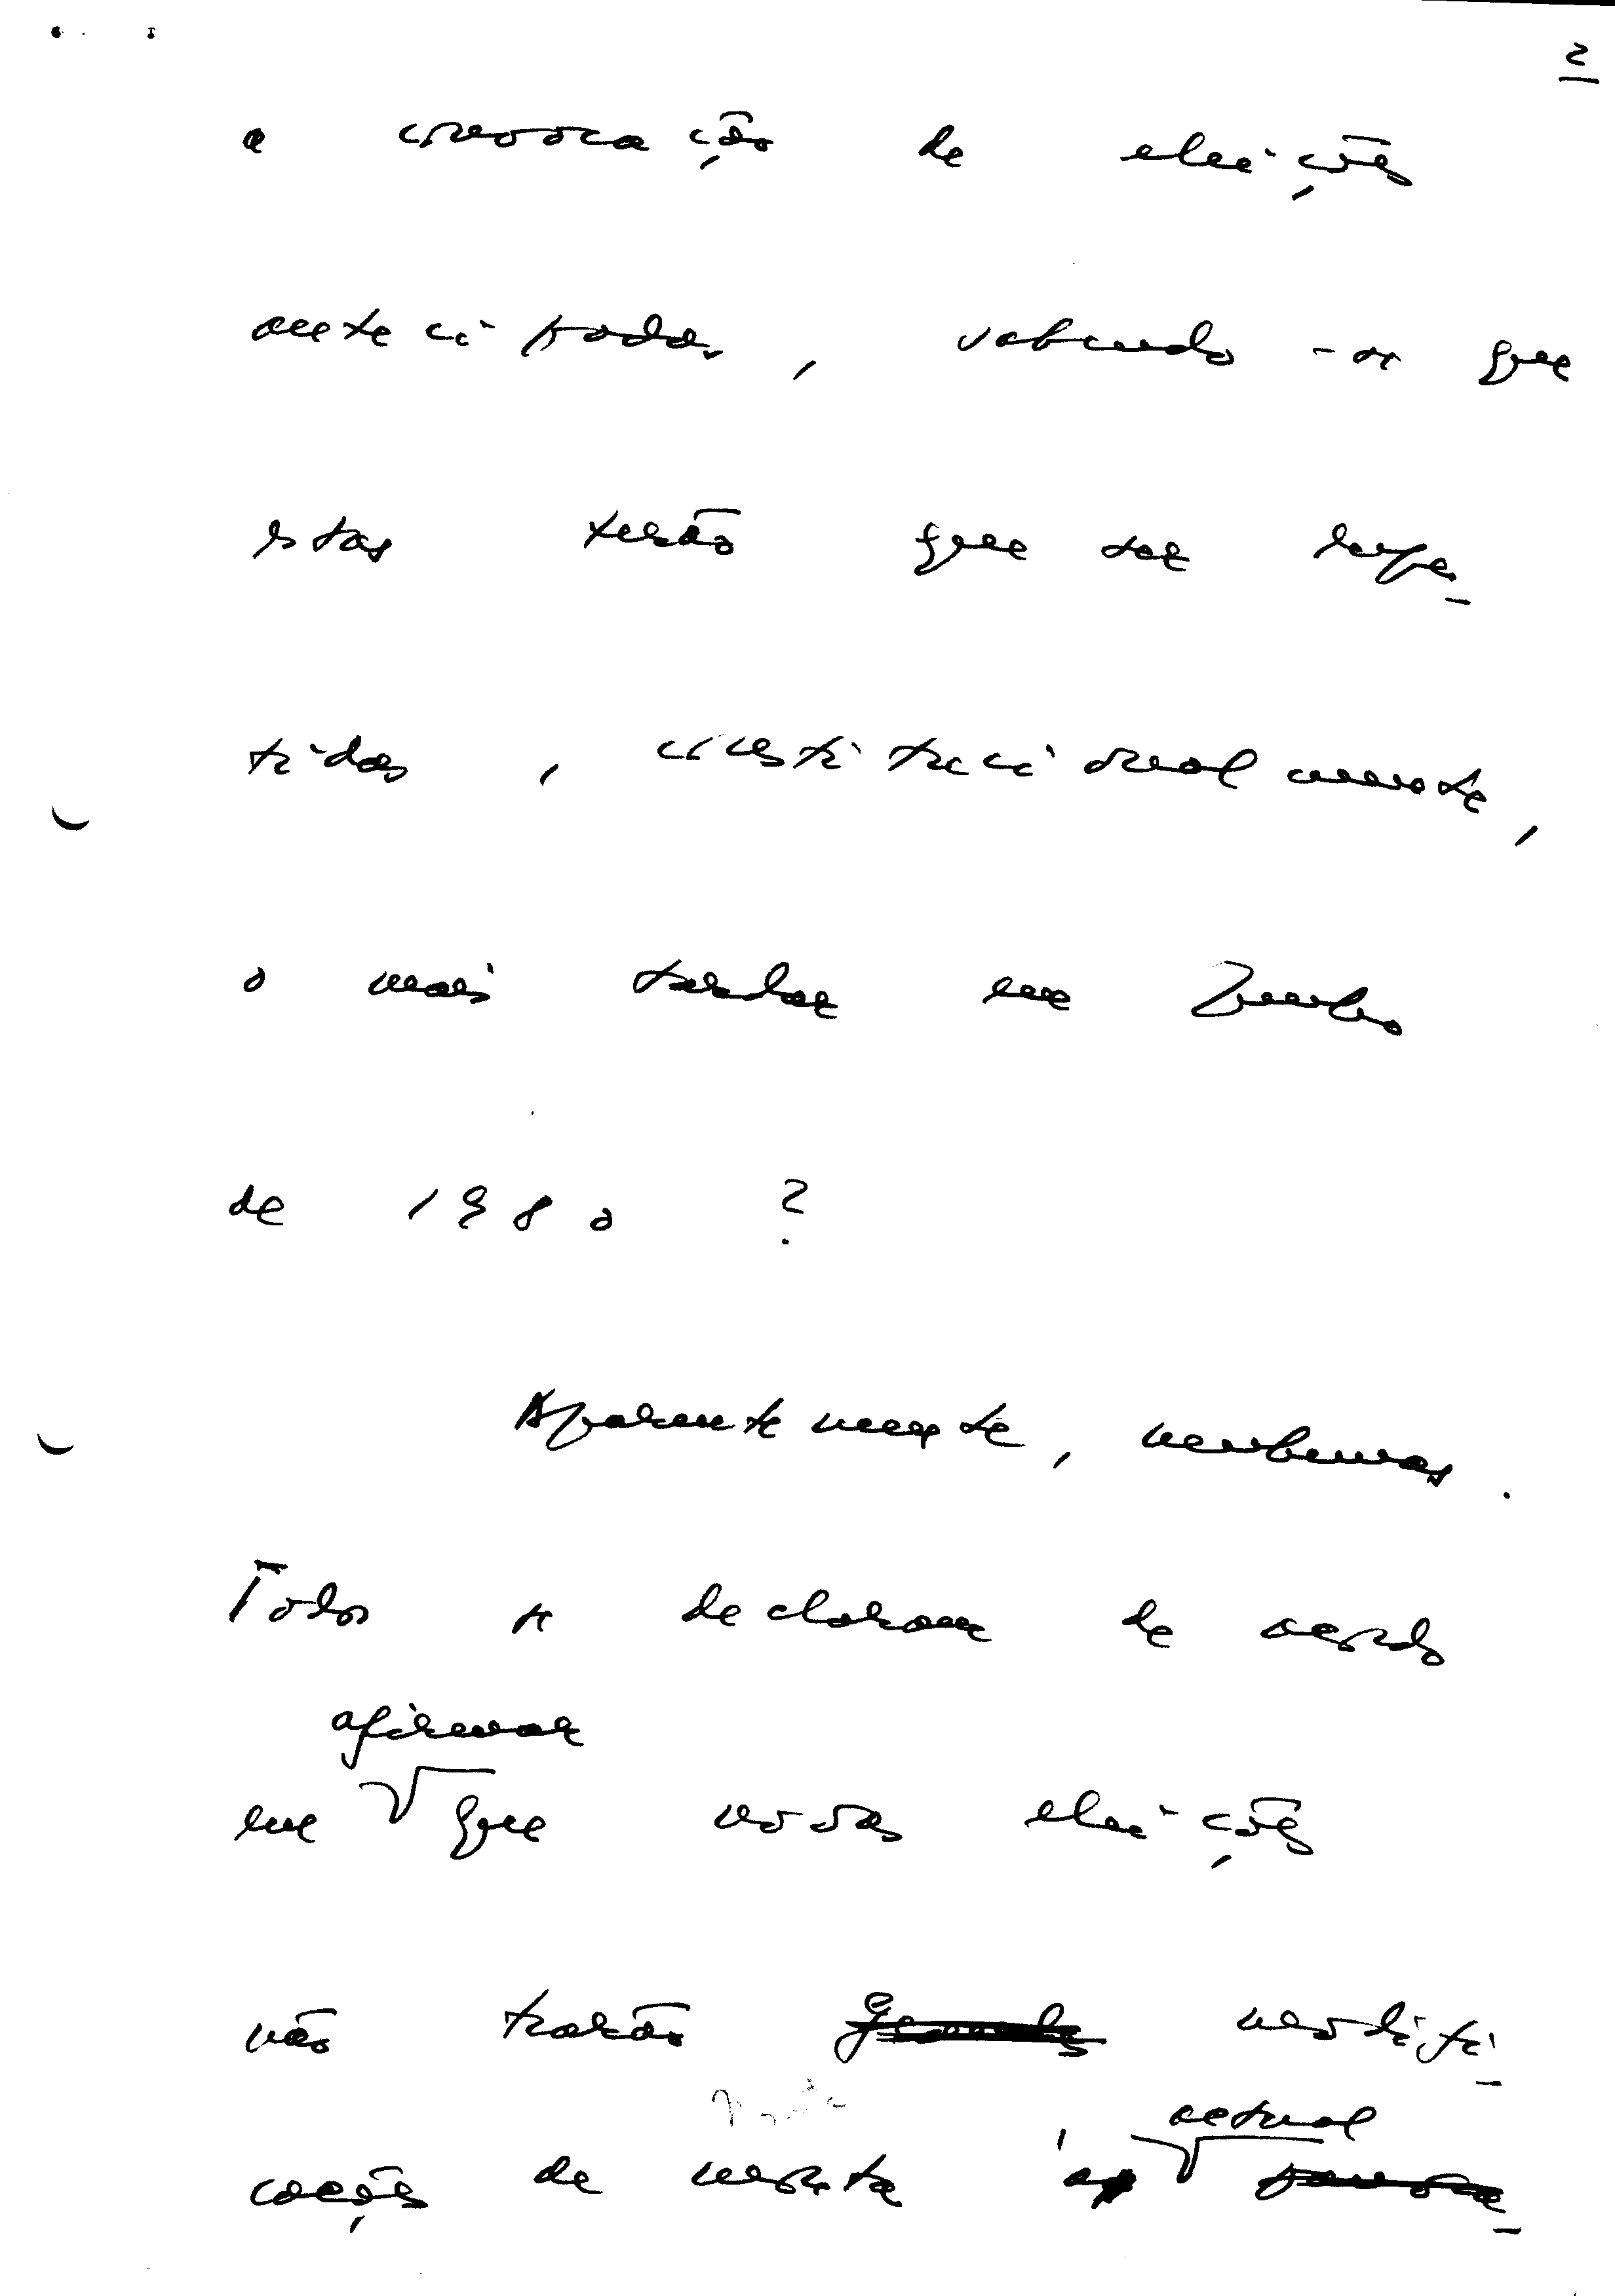 2
a convocação de eleições
antecipadas, sabendo-se que
estas terão que ser repe-
tidas, constitucionalmente,
o mais tardar em Junho
de 1980 ?
Aparentemente, nenhumas.
Todos se declaram de acordo
afirmar
em que novas eleições
não trarão grandes modifi-
actual
cações de monta à